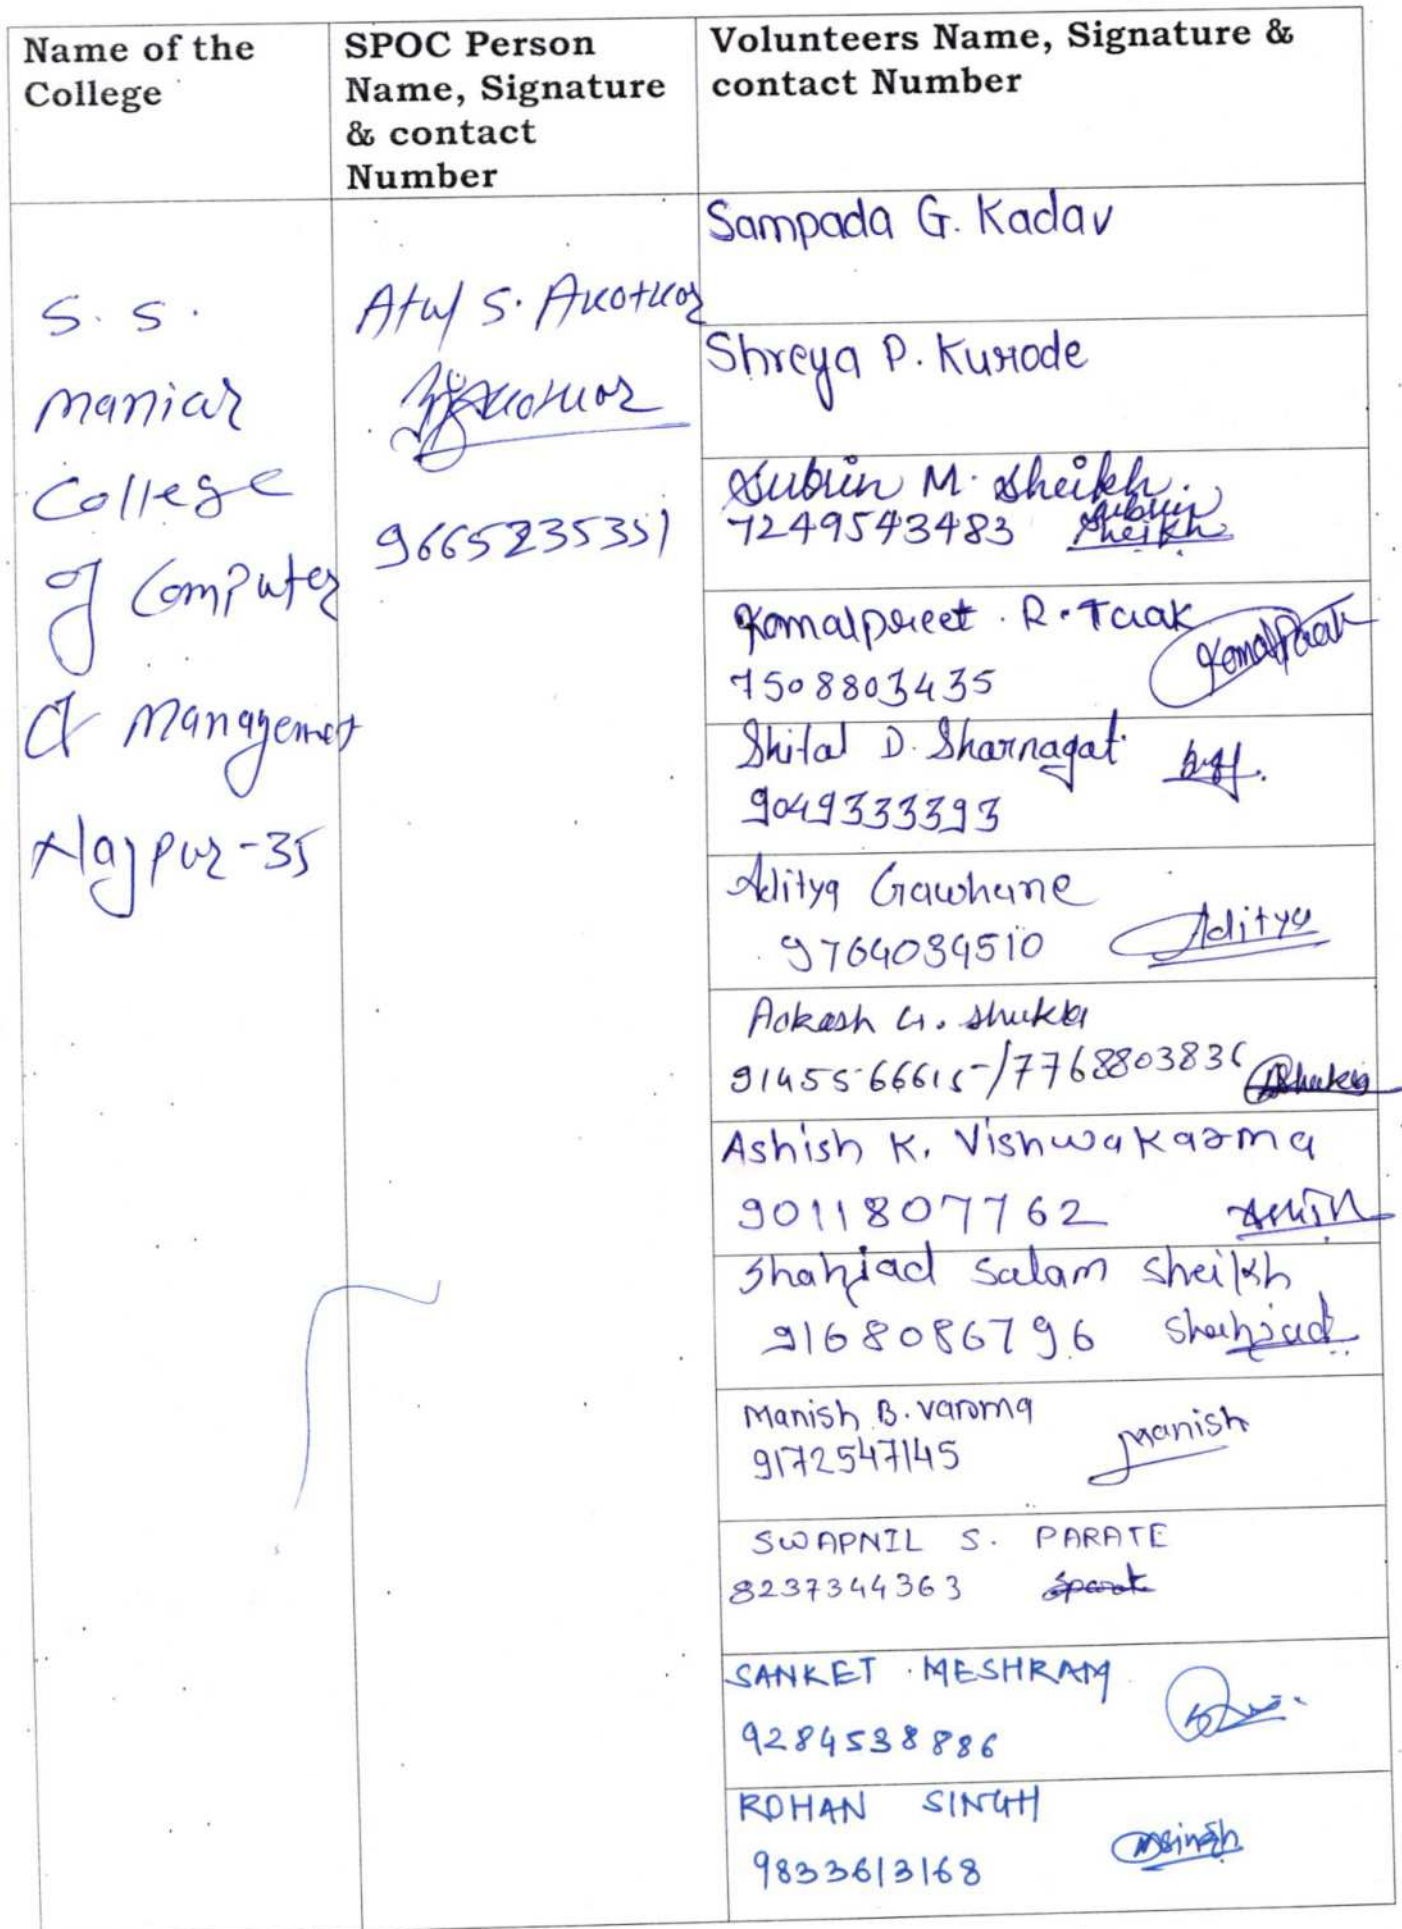 Name of the
College
SPOC Person
Name, Signature
& contact
Number
Volunteers Name, Signature &
contact Number
S. S.
maniar
College
of Computer
& Management
Nagpur-35
Atul S. Akotkar
Akotkar
9665235351
Sampada G. Kadav
Shreya P. Kurode
Subrin M. Sheikh.
7249543483 Subrin
Sheikh
Komalpreet R. Taak
7508803435
Shital D. Sharnagat
9049333393
Aditya Gawhane
9764039510 Aditya
Aakash G. Shukla
9145566615/7768803836 Shukla
Ashish K. Vishwakarma
9011807762 Ashish
Shahjad Salam Sheikh
9168086796 Shahjad
Manish B. varma
9172547145 Manish
SWAPNIL S. PARATE
8237344363 Sparate
SANKET MESHRAM
9284538886
ROHAN SINGH
9833613168 Rsingh